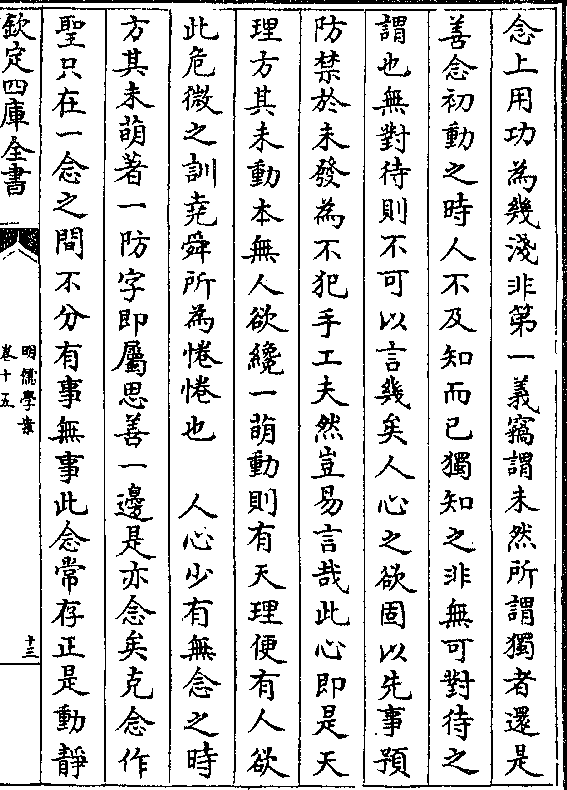 念上用功為幾淺非第一義竊謂未然所謂獨者還是
善念初動之時人不及知而已獨知之非無可對待之
謂也無對待則不可以言幾矣人心之欲固以先事預
防禁於未發為不犯手工夫然豈易言哉此心即是天
理方其未動本無人欲纔一萌動則有天理便有人欲
此危微之訓堯舜所為惓惓也　人心少有無念之時
方其未萌著一防字即屬思善一邊是亦念矣克念作
聖只在一念之間不分有事無事此念常存正是動靜
欽定四庫全書
明儒學案
卷十五
十三